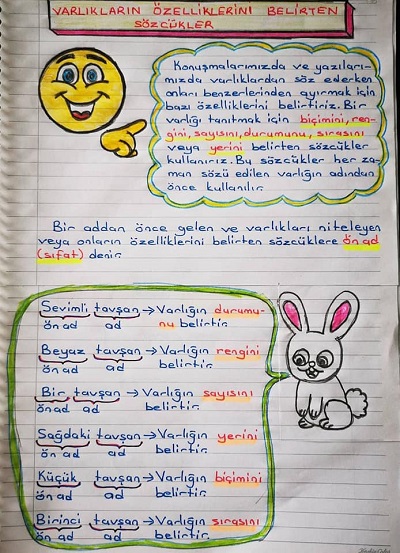 VARLIKLARIN ÖZELLİKLERİNİ BELİRTEN
SÖZCÜKLER
Konuşmalarımızda ve yazıları-
mızda varlıklardan söz ederken
onları benzerlerinden ayırmak için
bazı özelliklerini belirtiriz. Bir
varlığı tanıtmak için biçimini, ren-
gini, sayısını, durumunu, sırasını
veya yerini belirten sözcükler
kullanırız. Bu sözcükler her za-
man sözü edilen varlığın adından
önce kullanılır.
Bir addan önce gelen ve varlıkları niteleyen
veya onların özelliklerini belirten sözcüklere ön ad
(sıfat) denir.
Sevimli tavşan → Varlığın durumu-
ön ad ad nu belirtir.
Beyaz tavşan → Varlığın rengini
ön ad ad belirtir.
Bir tavşan → Varlığın sayısını
ön ad ad belirtir.
Sağdaki tavşan → Varlığın yerini
ön ad ad belirtir.
Küçük tavşan → Varlığın biçimini
ön ad ad belirtir.
Birinci tavşan → Varlığın sırasını
ön ad ad belirtir.